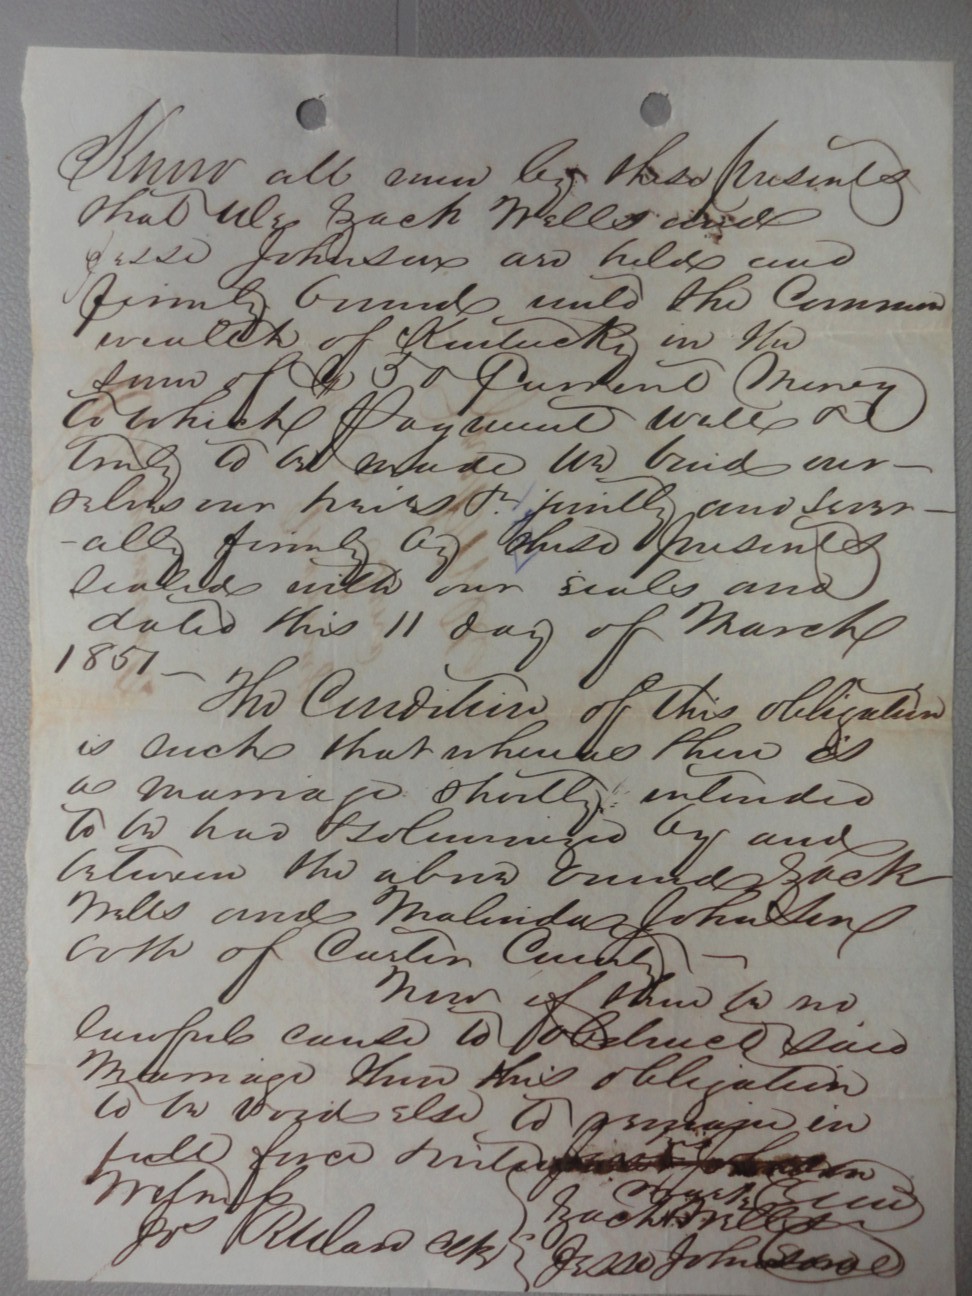 Know all men by these presents
that We Zack Wells and
Jesse Johnson are held and
firmly bound unto the Common
wealth of Kentucky in the
sum of $50 Current Money
to which payment well &
truly to be made we bind our-
selves our heirs &c jointly and sever-
-ally firmly by these presents
sealed with our seals and
dated this 11 day of March
1851 -
The Condition of this obligation
is such that whereas there is
a marriage shortly intended
to be had & solemnized by and
between the above bound Zack
Wells and Malinda Johnson
both of Carter County -
Now if there be no
lawful cause to obstruct said
Marriage then this obligation
to be void else to remain in
full force & virtue
Witness
Zack Wells
Jos Rulard clk Jesse Johnson